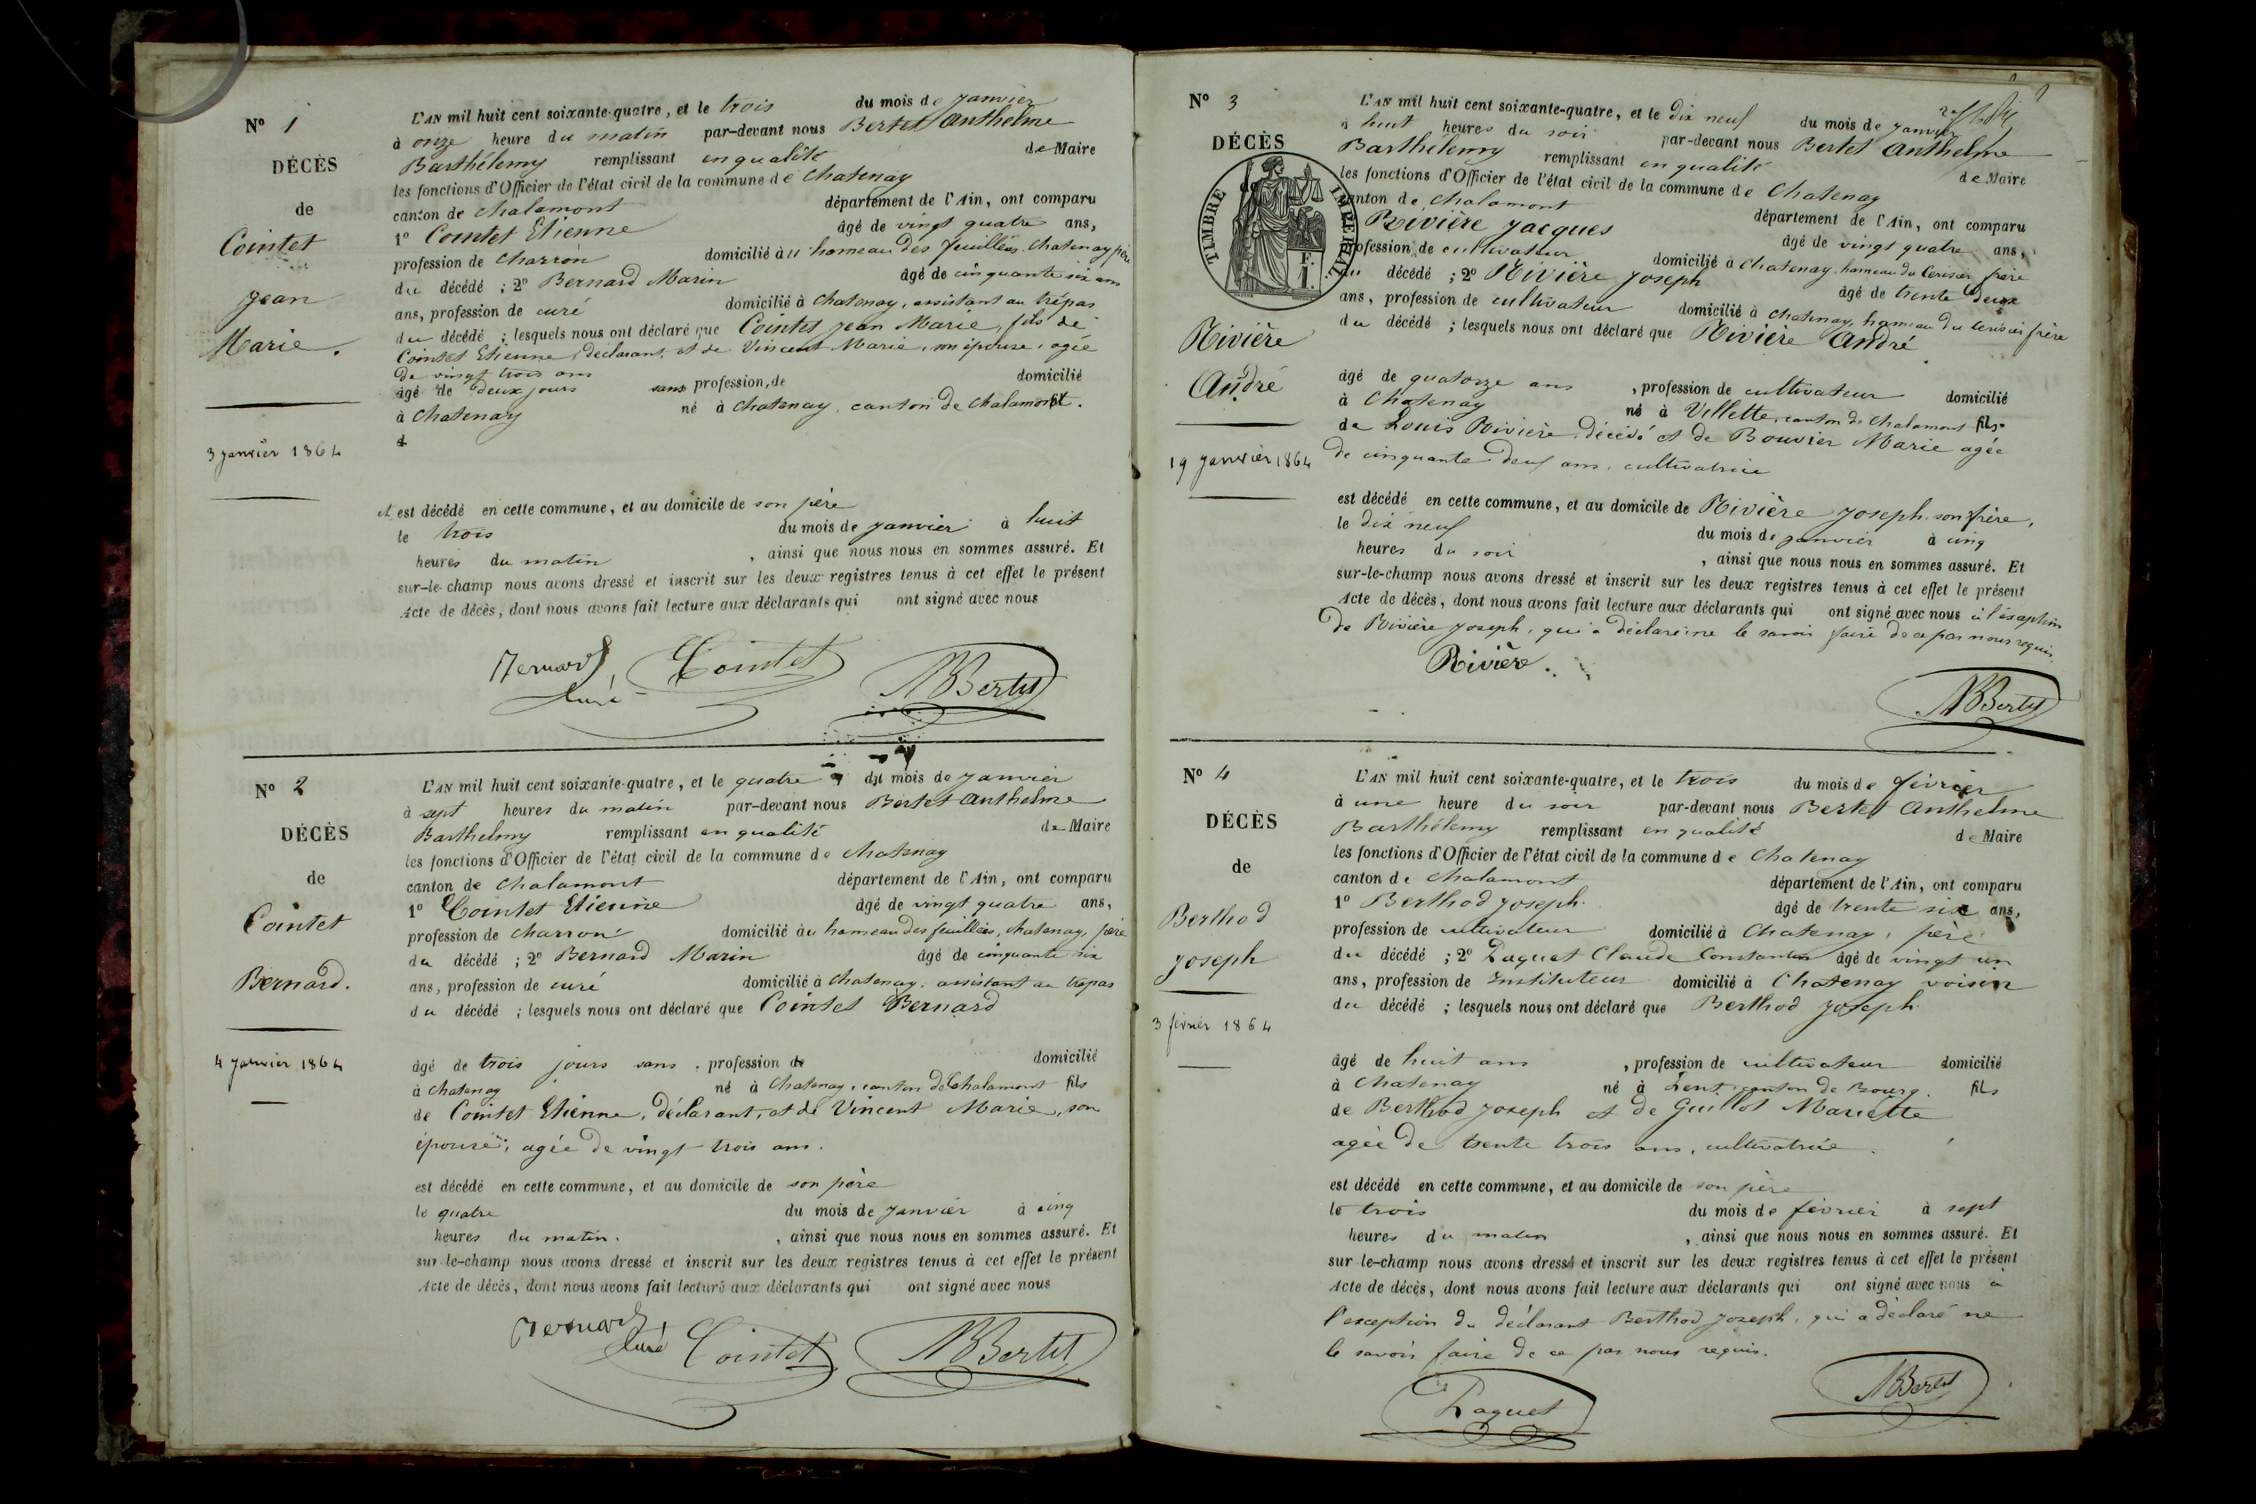 N° 1
DÉCÈS
de
Cointet
Jean
Marie.
3 janvier 1864
L'AN mil huit cent soixante-quatre, et le trois du mois de janvier
à onze heure du matin par-devant nous Bertet Anthelme
Barthélemy remplissant en qualité de Maire
les fonctions d'Officier de l'état civil de la commune de Chatenay
canton de Chalamont département de l'Ain, ont comparu
1° Cointet Etienne âgé de vingt quatre ans,
profession de charron domicilié au hameau des feuillées, Chatenay, père
du décédé ; 2° Bernard Marin âgé de cinquante six ans
ans, profession de curé domicilié à Chatenay, assistant au trépas
du décédé ; lesquels nous ont déclaré que Cointet Jean Marie, fils de
Cointet Etienne, déclarant, et de Vincent Marie, son épouse, agée
de vingt trois ans
âgé de deux jours sans profession, de domicilié
à Chatenay né à Chatenay, canton de Chalamont.
et est décédé en cette commune, et au domicile de son père
le trois du mois de janvier à huit
heures du matin, ainsi que nous nous en sommes assuré. Et
sur-le-champ nous avons dressé et inscrit sur les deux registres tenus à cet effet le présent
Acte de décès, dont nous avons fait lecture aux déclarants qui ont signé avec nous
Bernard, Cointet
curé
ABBertet
N° 2
DÉCÈS
de
Cointet
Bernard.
4 janvier 1864
L'AN mil huit cent soixante-quatre, et le quatre du mois de janvier
à sept heures du matin par-devant nous Bertet Anthelme
Barthelmy remplissant en qualité de Maire
les fonctions d'Officier de l'état civil de la commune de Chatenay
canton de Chalamont département de l'Ain, ont comparu
1° Cointet Etienne âgé de vingt quatre ans,
profession de charron domicilié au hameau des feuillées, Chatenay, père
du décédé ; 2° Bernard Marin âgé de cinquante six
ans, profession de curé domicilié à Chatenay, assistant au trépas
du décédé ; lesquels nous ont déclaré que Cointet Bernard
âgé de trois jours sans profession de domicilié
à Chatenay né à Chatenay, canton de Chalamont fils
de Cointet Etienne, déclarant, et de Vincent Marie, son
épouse, agée de vingt trois ans.
est décédé en cette commune, et au domicile de son père
le quatre du mois de janvier à cinq
heures du matin, ainsi que nous nous en sommes assuré. Et
sur-le-champ nous avons dressé et inscrit sur les deux registres tenus à cet effet le présent
Acte de décès, dont nous avons fait lecture aux déclarants qui ont signé avec nous
Bernard,
curé Cointet ABBertet
N° 3
DÉCÈS
de
TIMBRE IMPÉRIAL
F.
1.
Rivière
André
19 janvier 1864
L'AN mil huit cent soixante-quatre, et le dix neuf du mois de janvier
à huit heures du soir par-devant nous Bertet Anthelme
Barthélemy remplissant en qualité de Maire
les fonctions d'Officier de l'état civil de la commune de Chatenay
canton de Chalamont département de l'Ain, ont comparu
Rivière Jacques âgé de vingt quatre ans,
profession de cultivateur domicilié à Chatenay, hameau du Cerisier frère
du décédé ; 2° Rivière Joseph âgé de trente deux
ans, profession de cultivateur domicilié à Chatenay, hameau du Cerisier frère
du décédé ; lesquels nous ont déclaré que Rivière André
âgé de quatorze ans, profession de cultivateur domicilié
à Chatenay né à Villette, canton de Chalamont fils
de Louis Rivière, décédé et de Bouvier Marie agée
de cinquante deux ans, cultivatrice
est décédé en cette commune, et au domicile de Rivière Joseph, son frère,
le dix neuf du mois de janvier à cinq
heures du soir, ainsi que nous nous en sommes assuré. Et
sur-le-champ nous avons dressé et inscrit sur les deux registres tenus à cet effet le présent
Acte de décès, dont nous avons fait lecture aux déclarants qui ont signé avec nous à l'éxception
de Rivière Joseph, qui a déclaré ne le savoir faire de ce par nous requis.
Rivière.
ABBertet
N° 4
DÉCÈS
de
Berthod
Joseph
3 février 1864
L'AN mil huit cent soixante-quatre, et le trois du mois de février
à une heure du soir par-devant nous Bertet Anthelme
Barthélemy remplissant en qualité de Maire
les fonctions d'Officier de l'état civil de la commune de Chatenay
canton de Chalamont département de l'Ain, ont comparu
1° Berthod Joseph âgé de trente six ans,
profession de cultivateur domicilié à Chatenay, père
du décédé ; 2° Paquet Claude Constantin âgé de vingt un
ans, profession de Instituteur domicilié à Chatenay voisin
du décédé ; lesquels nous ont déclaré que Berthod Joseph
âgé de huit ans, profession de cultivateur domicilié
à Chatenay né à Lent, canton de Bourg. fils
de Berthod Joseph et de Guillot Mariette
agée de trente trois ans, cultivatrice.
est décédé en cette commune, et au domicile de son père
le trois du mois de février à sept
heures du matin, ainsi que nous nous en sommes assuré. Et
sur-le-champ nous avons dressé et inscrit sur les deux registres tenus à cet effet le présent
Acte de décès, dont nous avons fait lecture aux déclarants qui ont signé avec nous à
l'exception du déclarant Berthod Joseph, qui a déclaré ne
le savoir faire de ce par nous requis.
Paquet ABBertet